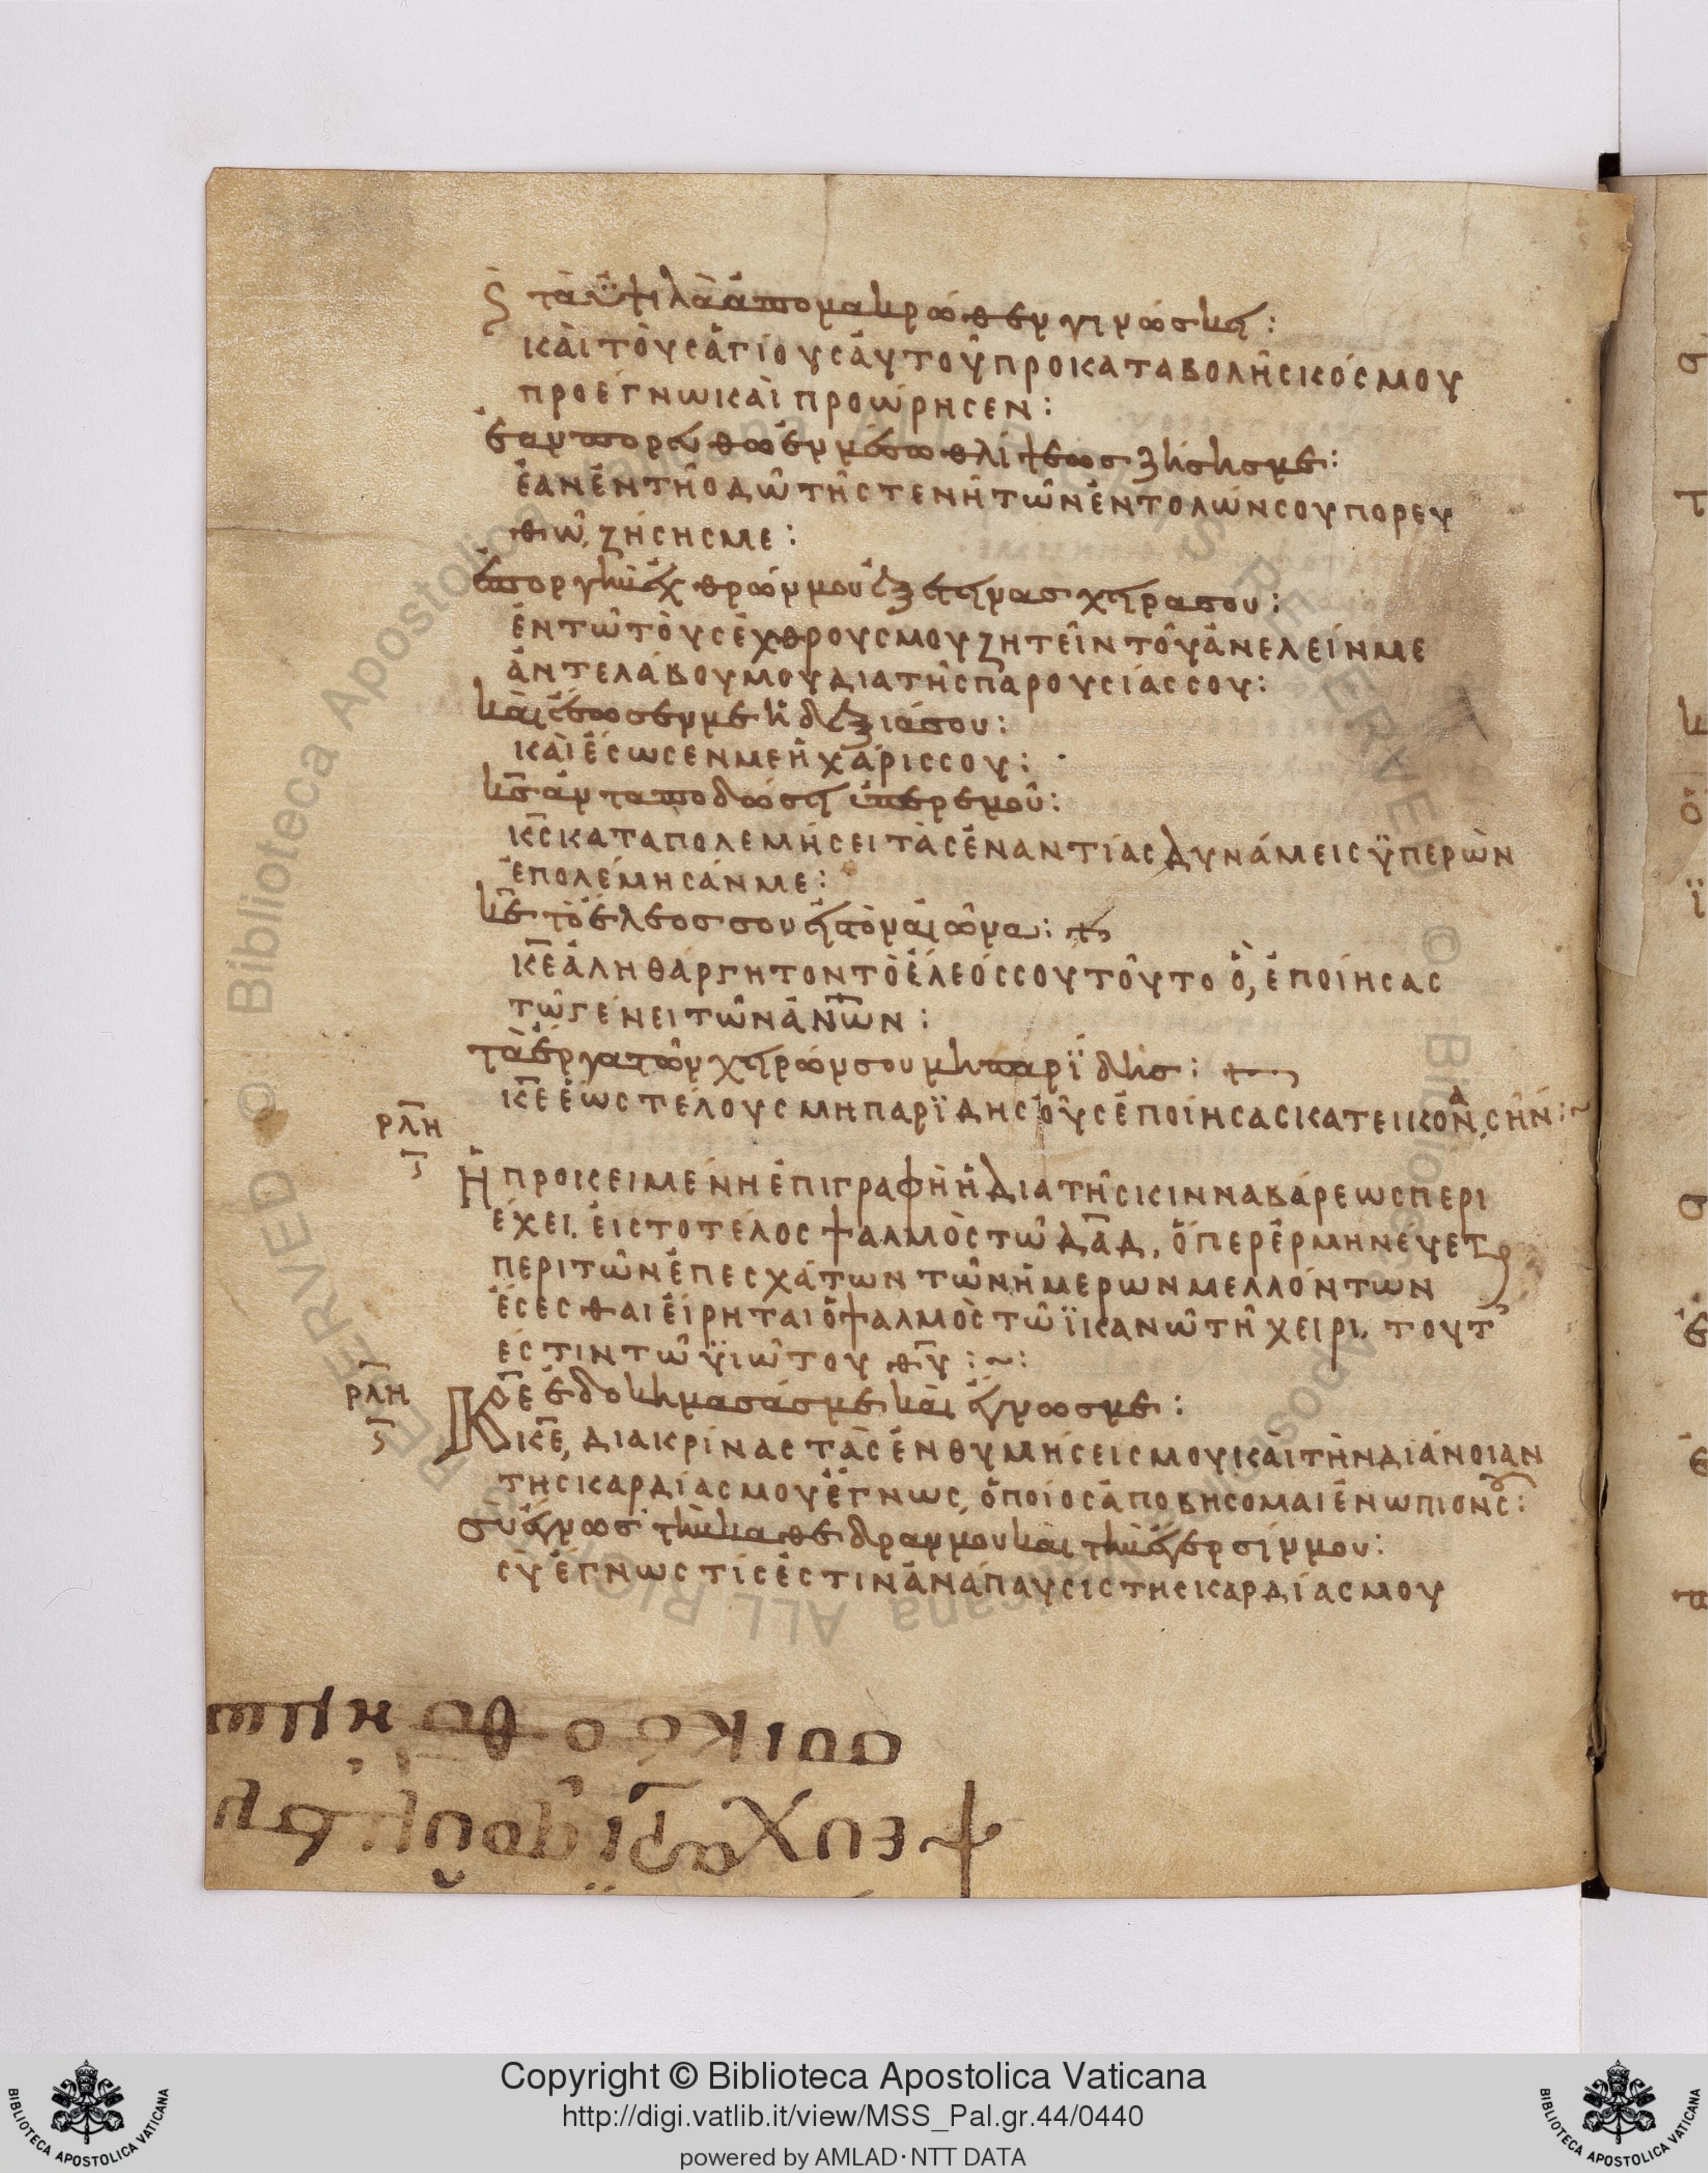 ς τὰ ὑψηλὰ ἀπομακρόθεν γινώσκει:
καὶ τοὺς ἁγίους αὐτοῦ προ καταβολῆς κόσμου
προέγνω καὶ προώρησεν:
ἐὰν πορευθῶ ἐν μέσω θλίψεως ζήσης με:
ἐὰν ἐν τῆ ὁδῶ τῆ στενῆ τῶν ἐντολῶν σου πορευ
θῶ, ζήσης με:
ἐπ' ὀργὴν ἐχθρῶν μου ἐξέτεινας χεῖρα σου:
ἐν τῶ τοὺς ἐχθρους μου ζητεῖν τοῦ ἀνελεῖν με
ἀντελάβου μου δια τῆς παρουσίας σου:
καὶ ἔσωσέν με ἡ δεξιά σου:
καὶ ἔσωσεν με ἡ χάρις σου:
κ̅ς̅ ἀνταποδώσει ὑπερ ἐμοῦ:
κ̅ς̅ καταπολεμήσει τὰς ἐναντίας δυνάμεις ὑπερ ὧν
ἐπολέμησάν με:
κ̅ε̅ τὸ ἔλεος σου εἰς τὸν αἰῶνα:
κ̅ε̅ ἀληθάργητον τὸ ἔλεός σου τοῦτο ὃ, ἐποίησας
τῶ γένει τῶν ἀν̅ων:
τὰ ἔργα τῶν χειρῶν σου μὴ παρίδης:
κ̅ε̅ ἕως τέλους μη παρίδης οὓς ἐποίησας κατ εἰκόνα σήν:~
ρ̅λ̅η̅
ς̅
Ἡ προκειμένη ἐπιγραφὴ ἡ δια τῆς κινναβάρεως περι
έχει. εἰς το τέλος ψαλμὸς τῶ δ̅α̅δ̅. ὅπερ ἑρμηνέυεται
περι τῶν ἐπ ἐσχάτων τῶν ἡμερων μελλόντων
ἔσεσθαι εἴρηται ὁ ψαλμὸς τῶ ἱκανῶ τῆ χειρι. τουτ
έστιν τῶ υἱῶ του θ̅υ̅:~:
ρ̅λ̅η̅
ς̅
Κ̅ε̅ ἐδοκήμασάς με καὶ ἔγνως με:
κ̅ε̅, διακρίνας τὰς ἐνθυμήσεις μου καὶ τὴν διάνοιαν
της καρδίας μου ἔγνως, ὁποῖος ἀποβησομαι ἐνώπιόν σου:
σὺ ἔγνως τὴν καθέδραν μου καὶ τὴν ἔγερσίν μου:
σὺ ἔγνως τίς ἐστιν ἀνάπαυσις της καρδίας μου
Copyright © Biblioteca Apostolica Vaticana
http://digi.vatlib.it/view/MSS_Pal.gr.44/0440
powered by AMLAD·NTT DATA